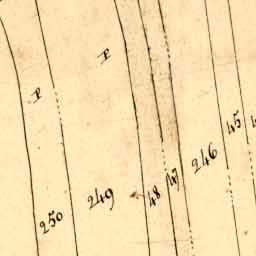 P
P
250
249
48
47
246
45